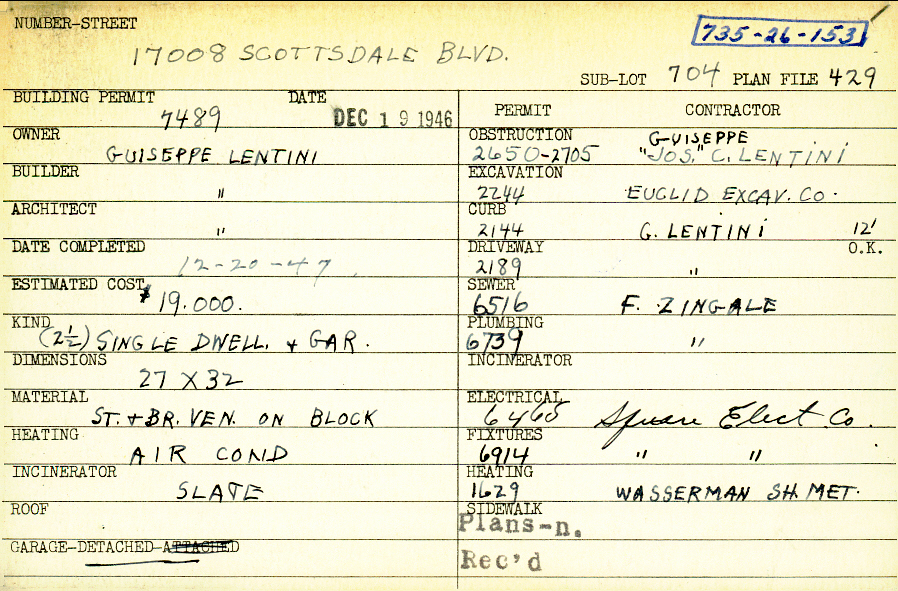 NUMBER-STREET
735-26-153
17008 SCOTTSDALE BLVD.
SUB-LOT 704 PLAN FILE 429
BUILDING PERMIT DATE
7489 DEC 19 1946
OWNER
GUISEPPE LENTINI
BUILDER
"
ARCHITECT
"
DATE COMPLETED
12-20-47
ESTIMATED COST
$19.000.
KIND
(2½) SINGLE DWELL. + GAR.
DIMENSIONS
27 X 32
MATERIAL
ST. + BR. VEN. ON BLOCK
HEATING
AIR COND
INCINERATOR
SLATE
ROOF
GARAGE-DETACHED-ATTACHED
PERMIT CONTRACTOR
OBSTRUCTION GUISEPPE
2650-2705 "JOS." C. LENTINI
EXCAVATION
2244 EUCLID EXCAV. CO.
CURB
2144 G. LENTINI 12'
DRIVEWAY O.K.
2189 "
SEWER
6516 F. ZINGALE
PLUMBING
6739 "
INCINERATOR
ELECTRICAL
6465 Square Elect. Co.
FIXTURES
6914 " "
HEATING
1629 WASSERMAN SH. MET.
SIDEWALK
Plans-n.
Rec'd